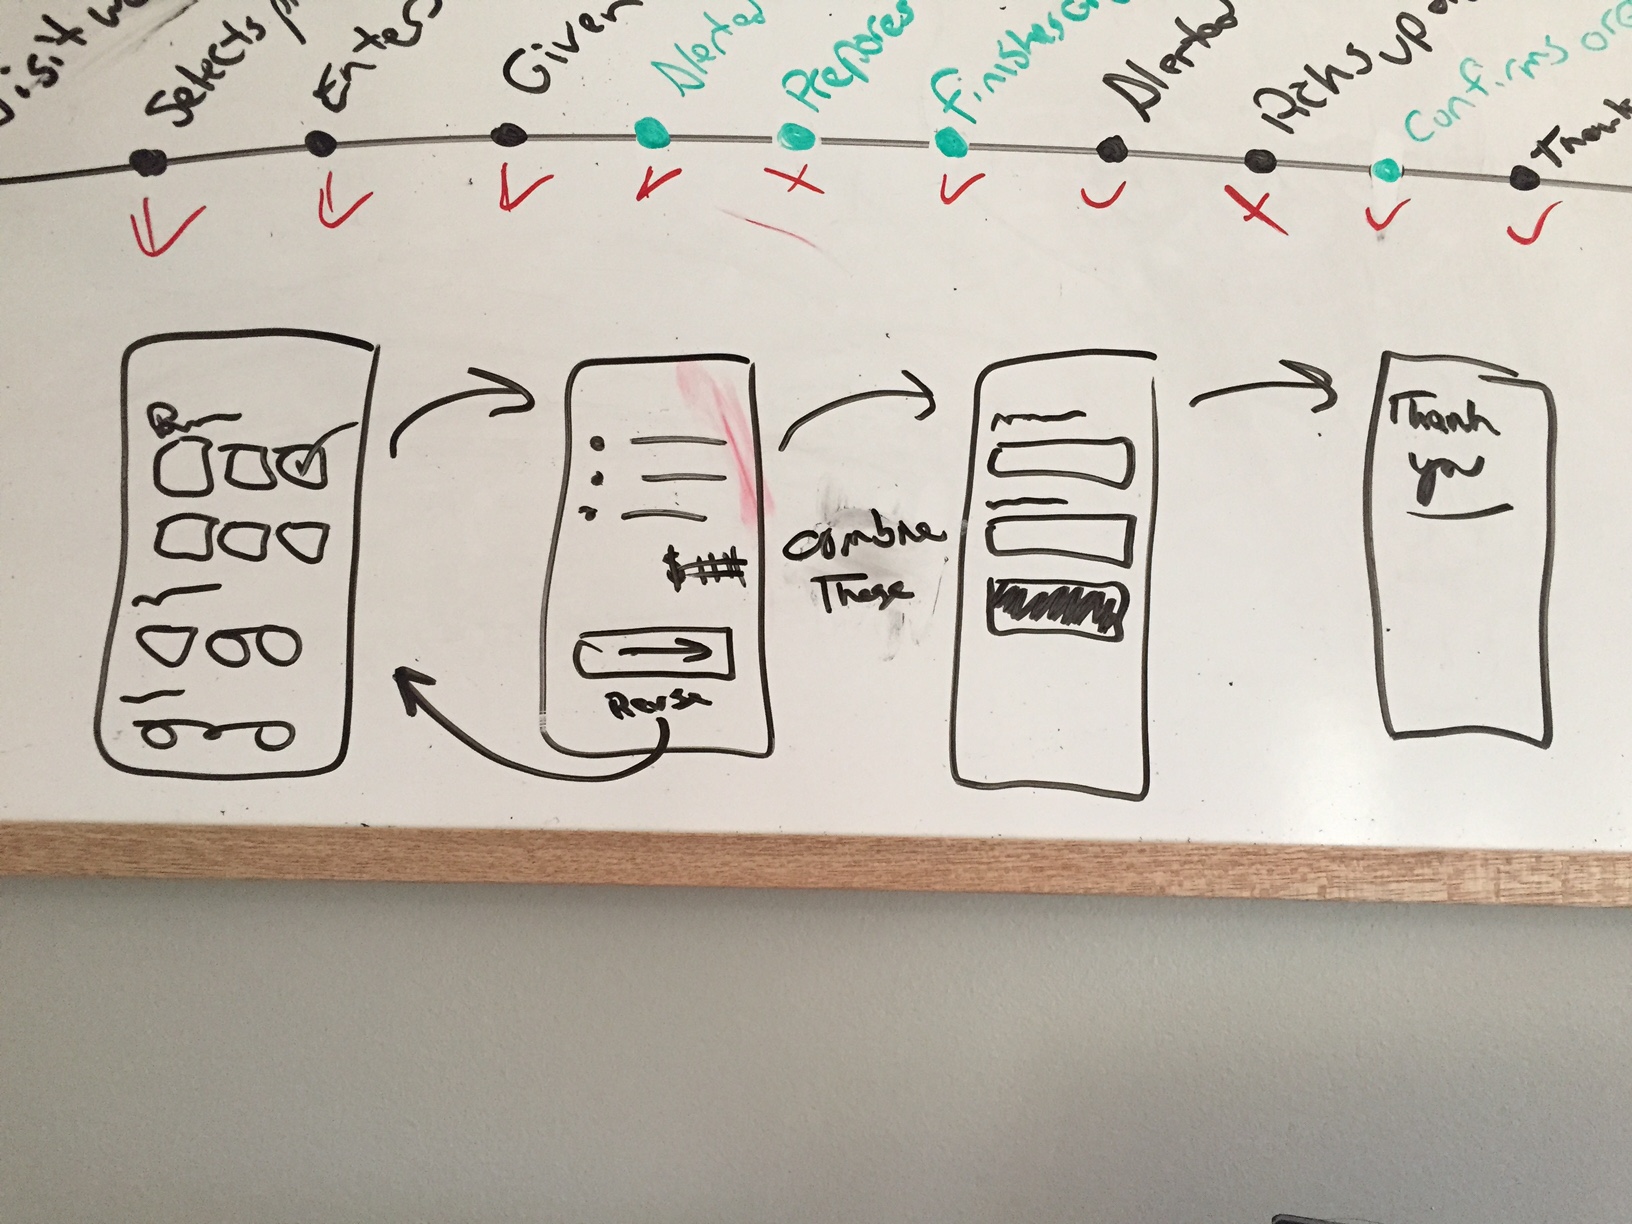 Visit
Selects
Enters
Given
Alerted
Prepares
Finishes
Alerted
Picks up
Confirms
Combine
These
Thank
you